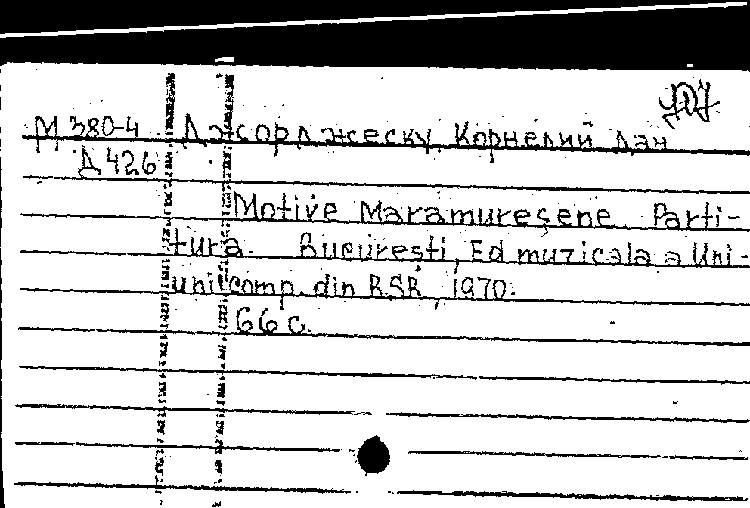 М 380-4 Джорджеску, Корнелий Дан
Д 426
Motive Maramureşene. Parti-
tura. Bucureşti, Ed muzicala a Uni-
unii comp. din RSR, 1970.
66 с.